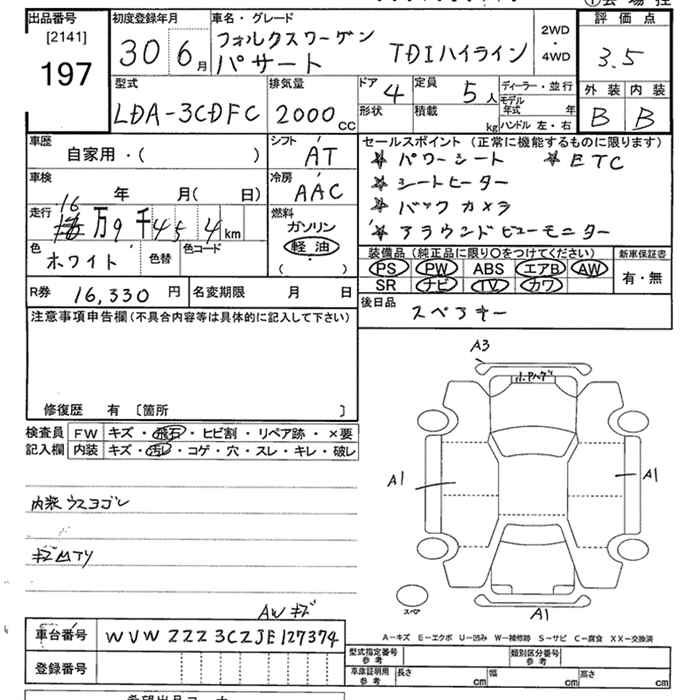 出品番号 [2141] 197
初度登録年月 30 6月
車名・グレード フォルクスワーゲン パサート TDIハイライン
2WD・4WD
評価点 3.5
外装 B 内装 B
型式 LDA-3CDFC
排気量 2000 CC
ドア 4
形状
定員 5人
積載 kg
ディーラー・並行
モデル年式 年
ハンドル 左・右
車歴 自家用・( )
シフト AT
セールスポイント(正常に機能するものに限ります)
☆ パワーシート ☆ ETC
☆ シートヒーター
☆ バックカメラ
☆ アラウンドビューモニター
車検 年 月( 日)
冷房 AAC
走行 16万9千454km
燃料 ガソリン 軽油 ( )
色 ホワイト 色替 色コード
装備品(純正品に限り○をつけてください) 新車保証書
PS PW ABS エアB AW 有・無
SR ナビ TV カワ
R券 16,330円 名変期限 月 日
後日品 スペアキー
注意事項申告欄(不具合内容等は具体的に記入して下さい)
修復歴 有 〔箇所 〕
検査員 FW キズ・飛石・ヒビ割・リペア跡・×要
記入欄 内装 キズ・汚レ・コゲ・穴・スレ・キレ・破レ
A3
A1
A1
内装ウスヨゴレ
スペア
A1
AWキズ
車台番号 WVWZZZ3CZJE127374
登録番号
A-キズ E-エクボ U-凹み W-補修跡 S-サビ C-腐食 XX-交換済
型式指定番号 参考 類別区分番号 参考
車庫証明用 参考 長さ cm 幅 cm 高さ cm